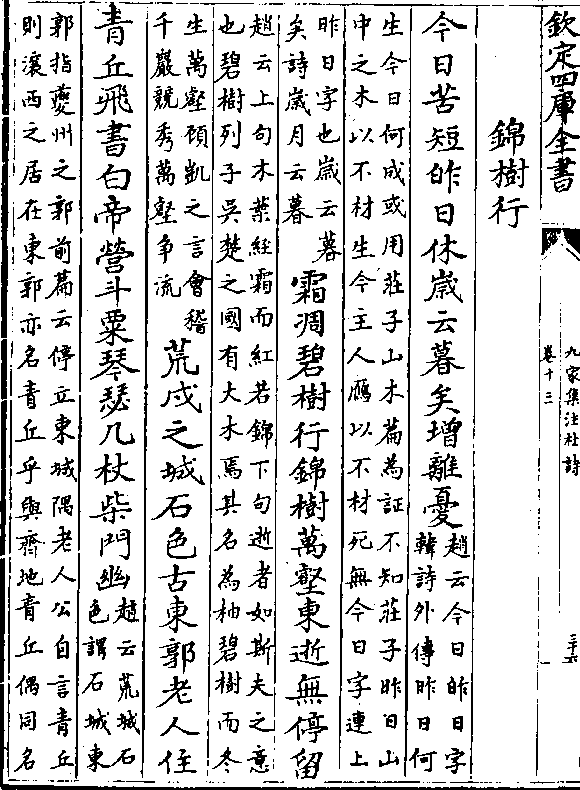 欽定四庫全書
九家集注杜詩
卷十三
錦樹行
今日苦短昨日休歲云暮矣增離憂
趙云今日昨日字
韓詩外傳昨日何
生今日何成或用莊子山木篇為証不知莊子昨日山
中之木以不材生今主人鴈以不材死無今日字連上
昨日字也歲云暮
矣詩歲月云暮
霜凋碧樹行錦樹萬壑東逝無停留
趙云上句木葉經霜而紅若錦下句逝者如斯夫之意
也碧樹列子吳楚之國有大木焉其名為柚碧樹而冬
生萬壑頋凱之言會稽
千巖競秀萬壑争流
荒戍之城石色古東郭老人住
青丘飛書白帝營斗粟琴瑟几杖柴門幽
趙云荒城石
色謂石城東
郭指夔州之郭前篇云停立東城隅老人公自言青丘
則瀼西之居在東郭亦名青丘乎與齊地青丘偶同名